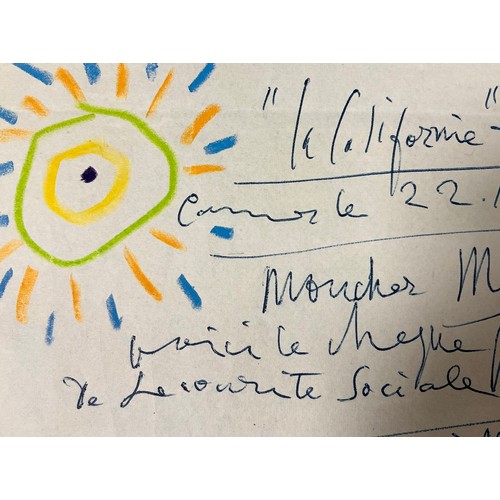 "la Californie"
Cannes le 22.1
Moncher M
voici le cheque
de Securite Sociale